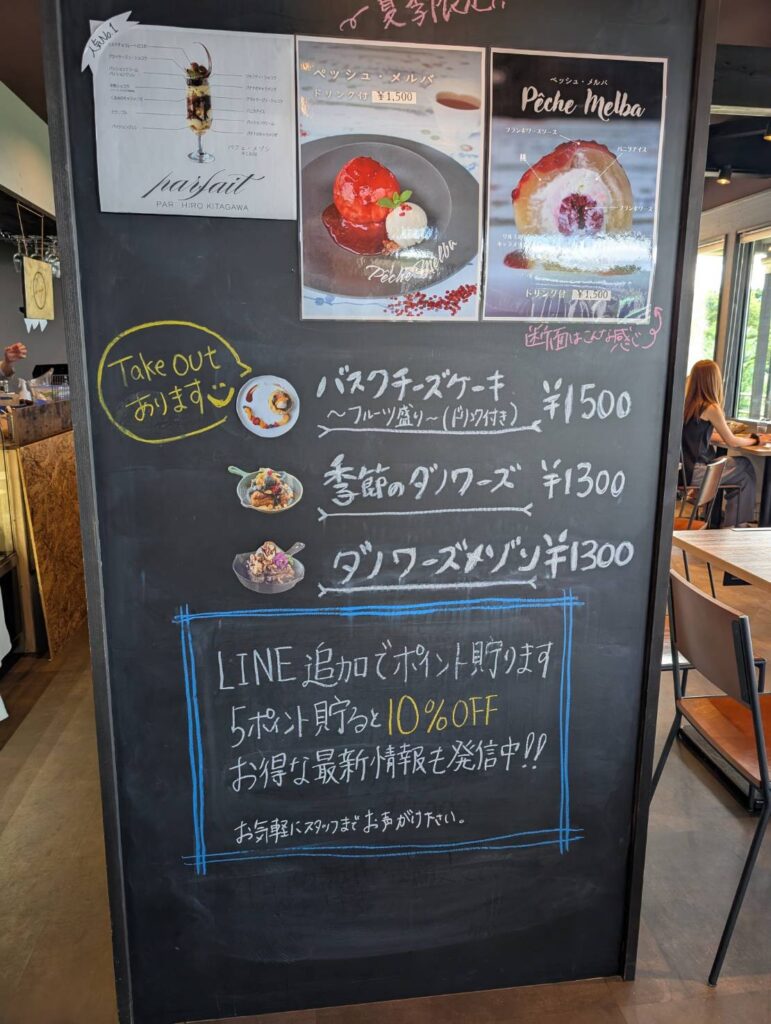 夏季限定!!
人気No.1
パフェ・メゾン
parfait
PAR HIRO KITAGAWA
ペッシュ・メルバ
ドリンク付 ¥1,500
Pêche Melba
ペッシュ・メルバ
Pêche Melba
フランボワーズソース
バニラアイス
桃
フランボワーズ
ドリンク付 ¥1,500
断面はこんな感じ
Take out
あります
バスクチーズケーキ ¥1500
〜フルーツ盛り〜(ドリンク付き)
季節のダノワーズ ¥1300
ダノワーズメゾン ¥1300
LINE 追加でポイント貯ります
5ポイント貯ると10%OFF
お得な最新情報も発信中!!
お気軽にスタッフまでお声がけ下さい。